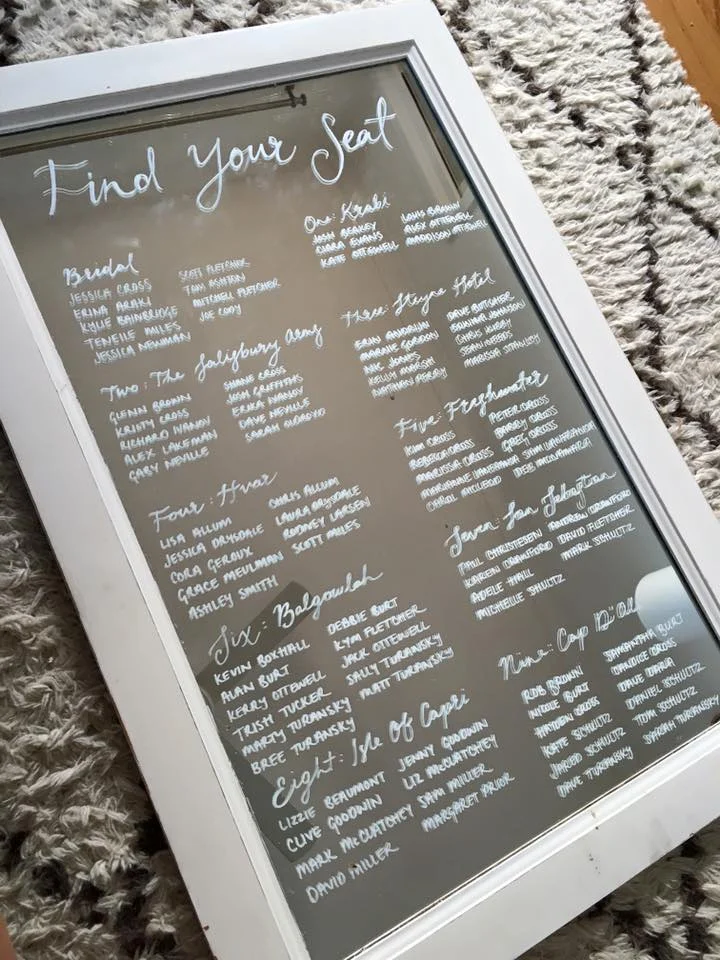 Find Your Seat
Bridal
JESSICA CROSS SCOTT FLETCHER
ERINA ARAKI TOM ASHTON
KYLIE BAINBRIDGE MITCHELL FLETCHER
TENEILE MILES JOE CODY
JESSICA NEWMAN
One: Krabi
JOSH BEAKEY LOUIS BROWN
CIARA EVANS ALEX OTTEWELL
KATE OTTEWELL MADDISON OTTEWELL
Two: The Salisbury Arms
GLENN BROWN SHANE CROSS
KRISTY CROSS JOSH GRIFFITHS
RICHARD IVANOV ERIKA IVANOV
ALEX LAKEMAN DAVE NEVILLE
GARY NEVILLE SARAH
Three: Steyne Hotel
ERIN DAVE BUTCHER
MARNIE GORDON JOHNSON
NIC JONES CHRIS
KELLY MARSH SEAN WEEDS
NATHAN PERRY MARISSA STANLEY
Four: Hvar
LISA ALLUM CHRIS ALLUM
JESSICA DRYSDALE LAURA DRYSDALE
CORA GEROUX RODNEY LARSEN
GRACE MEULMAN SCOTT MILES
ASHLEY SMITH
Five: Freshwater
KIM CROSS PETER CROSS
REBECCA CROSS BARRY CROSS
MARISSA CROSS GREG CROSS
MARIANNE SAM
CAROL MCLEOD DEB
Six: Balgowlah
KEVIN BOXHALL DEBBIE BURT
ALAN BURT KYM FLETCHER
KERRY OTTEWELL JACK OTTEWELL
TRISH TUCKER SALLY TURANSKY
MARTY TURANSKY MATT TURANSKY
BREE TURANSKY
Seven: San Sebastian
PAUL CHRISTESEN ANDREW CRAWFORD
KAREN CRAWFORD DAVID FLETCHER
ADELE HALL MARK SCHULTZ
MICHELLE SHULTZ
Eight: Isle Of Capri
LIZZIE BEAUMONT JENNY GOODWIN
CLIVE GOODWIN LIZ McCLATCHEY
MARK McCLATCHEY SAM MILLER
DAVID MILLER MARGARET PRIOR
Nine: Cap D'
ROB BROWN SAMANTHA BURT
NICOLE BURT CANDICE CROSS
HAYDEN CROSS DAVE DARIA
KATE SCHULTZ DANIEL SCHULTZ
JARED SCHULTZ TOM SCHULTZ
DAVE TURANSKY SARAH TURANSKY